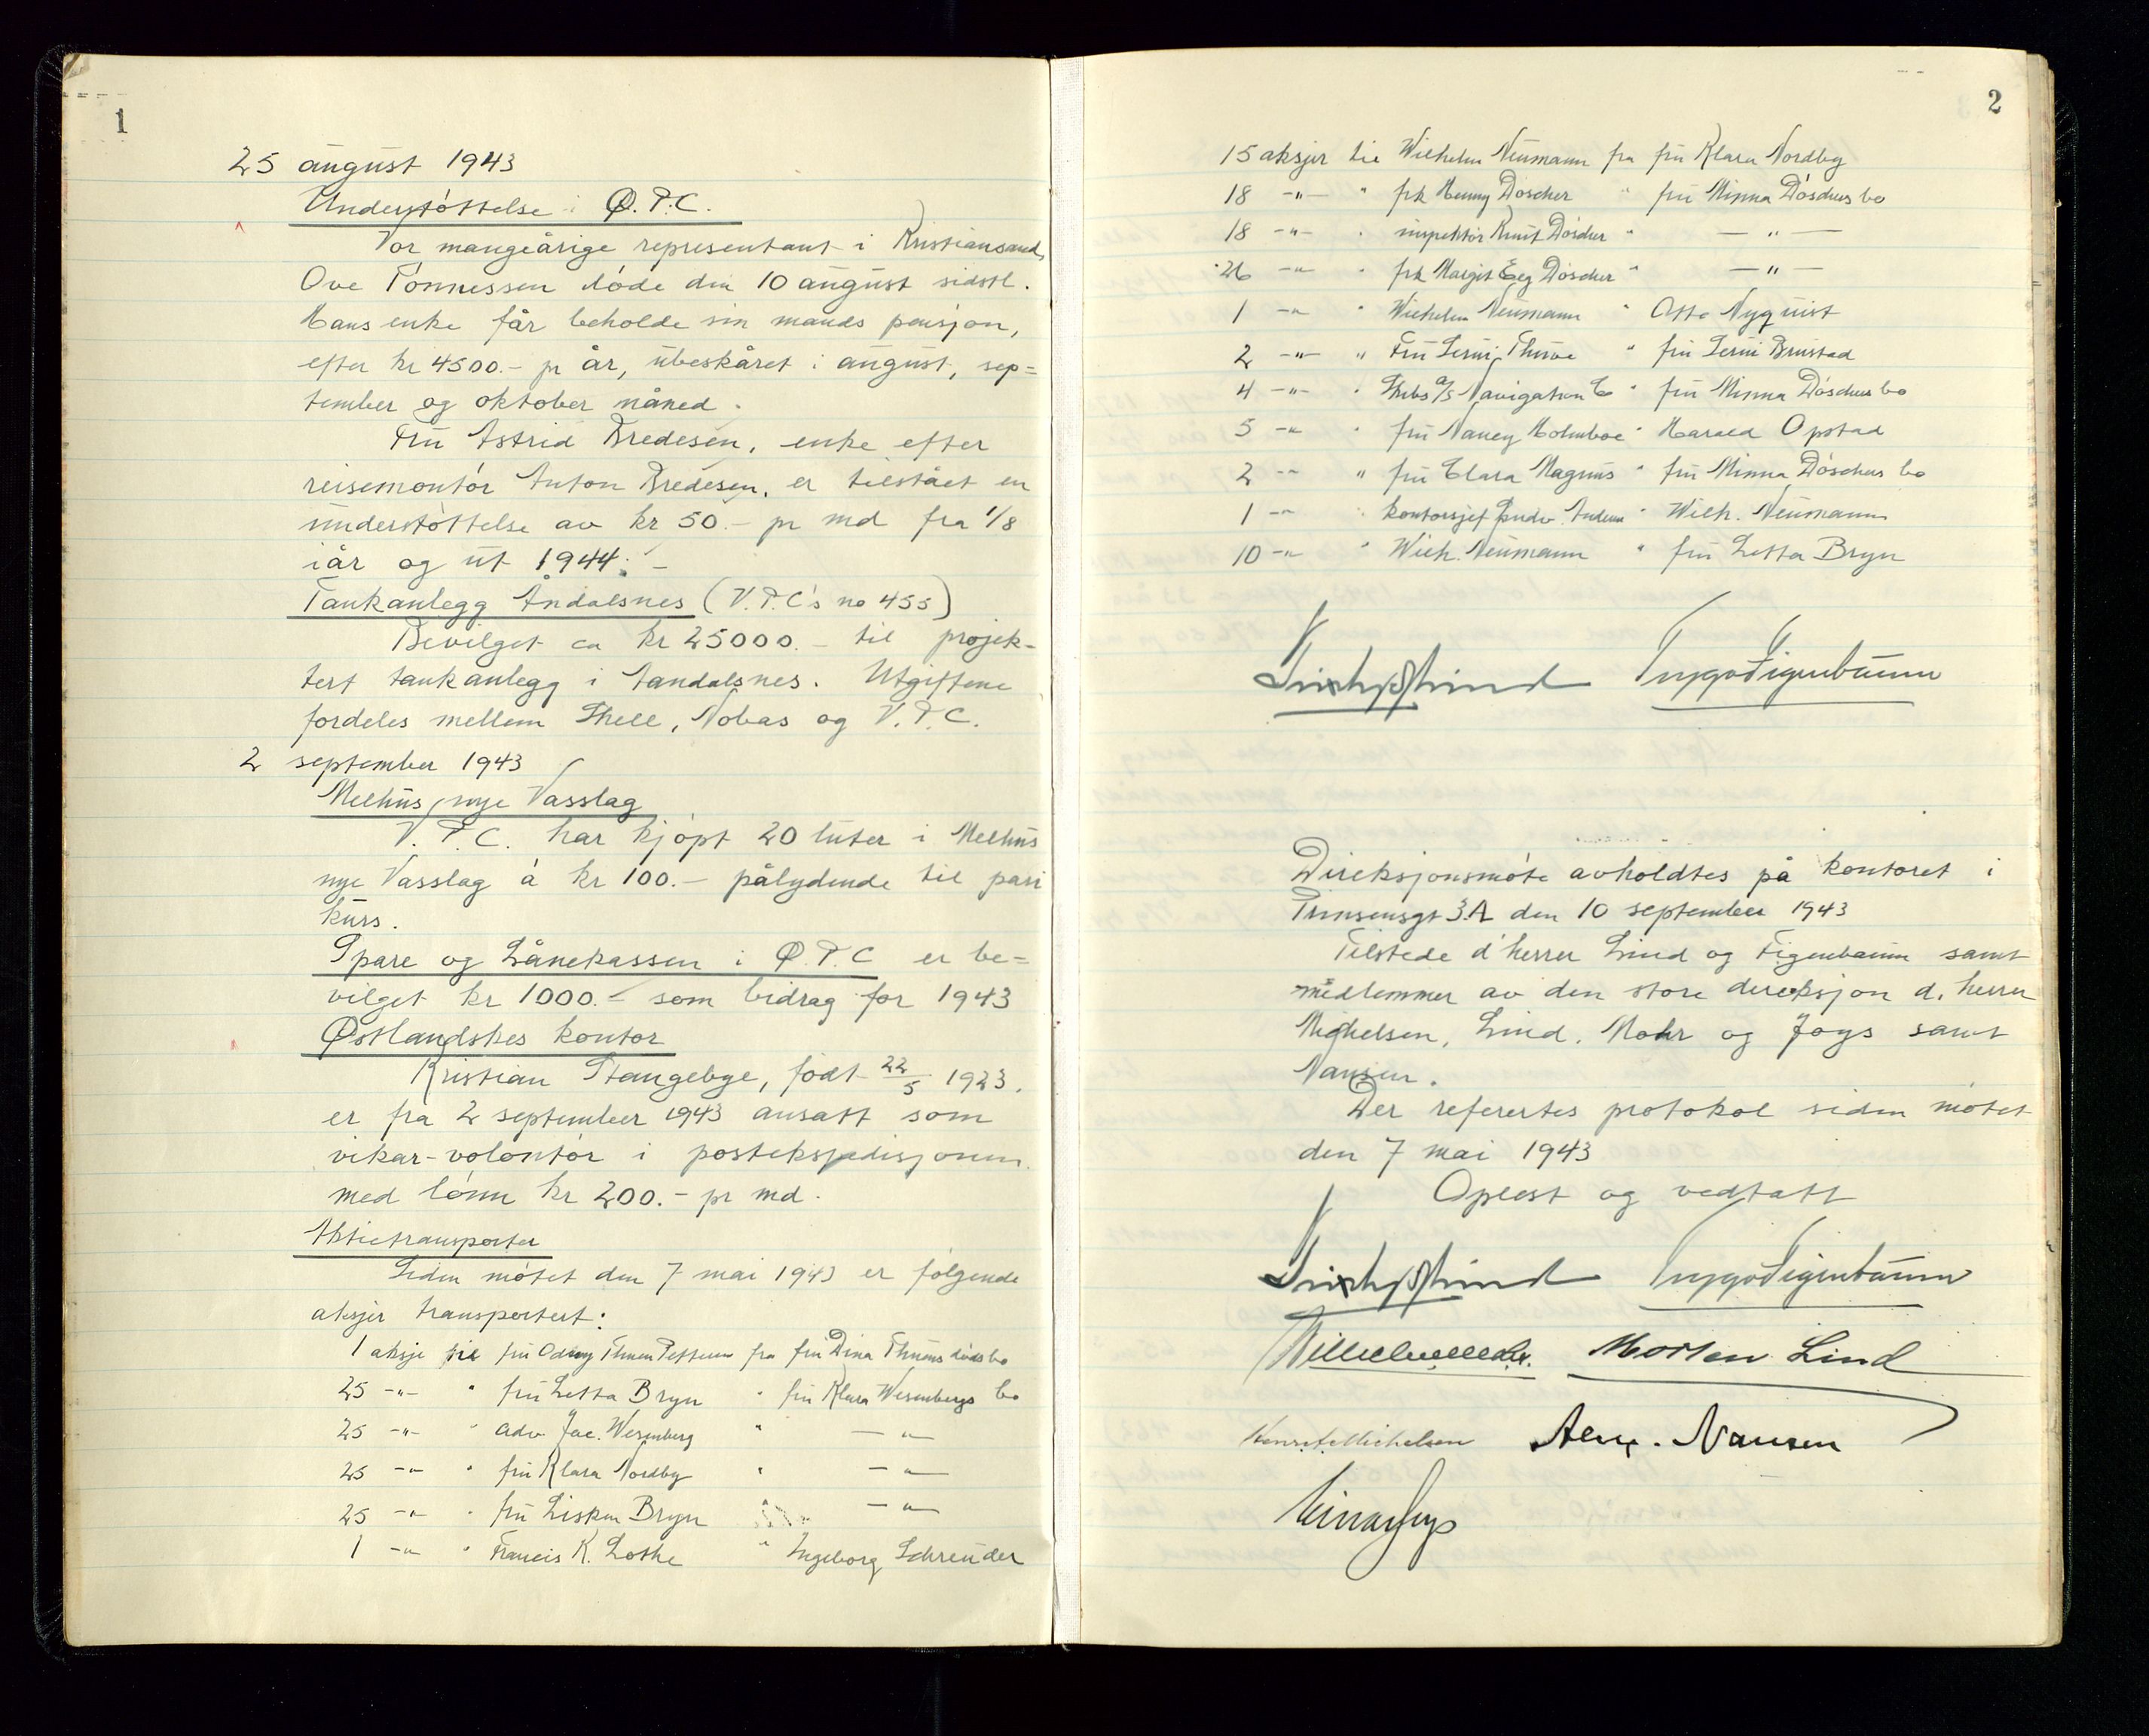 1
25 august 1943
Understøttelse i Ø.P.C.
Vor mangeårige representant i Kristiansand,
Ove Tønnessen døde den 10 august sidstl.
Hans enke får beholde sin mands pensjon,
efter kr 4500.- pr år, ubeskåret i august, sep=
tember og oktober måned.
Fru Astrid Bredesen, enke efter
reisemontør Anton Bredesen, er tilstået en
understøttelse av kr 50.- pr md fra 1/8
iår og ut 1944.-
Tankanlegg Åndalsnes (V.P.C's no 455)
Bevilget ca kr 25000.- til projek-
tert tankanlegg i Aandalsnes. Utgiftene
fordeles mellem Shell, Nobas og V.P.C.
2 september 1943
Melhus nye Vasslag
V.P.C. har kjøpt 20 luter i Melhus
nye Vasslag á kr 100.- pålydende til pari
kurs.
Spare og Lånekassen i Ø.P.C er be=
vilget kr 1000.- som bidrag for 1943
Østlandskes kontor
Kristian Stangebye, født 22/5 1923,
er fra 2 september 1943 ansatt som
vikar-volontør i postekspedisjonen
med lønn kr 200.- pr md.
Aktietransporter
Siden møtet den 7 mai 1943 er følgende
aksjer transportert:
1 aksje til fru Odny Thunes fra fru Dina Thunes dødsbo
25 -"- " fru Letta Bryn " fru Klara Wesenbergs bo
25 -"- " adv Jac. Wesenberg " -"-
25 -"- " fru Klara Nordby " -"-
25 -"- " fru Lisken Bryn " -"-
1 -"- " Francis K. Lothe " Ingeborg Schreuder
2
15 aksjer til Wilhelm Neumann fra fru Klara Nordby
18 -"- " frk Henny Döscher " fru Minna Döschers bo
18 -"- " inspektør Knut Döscher " -"-
26 -"- " frk Margit Eeg Döscher " -"-
1 -"- " Wilhelm Neumann " Otto Nyquist
2 -"- " Fru Thure " fru Brustad
4 -"- " A/S Navigation Co " fru Minna Döschers bo
5 -"- " fru Nancy Holmboe " Harald Opstad
2 -"- " fru Clara Magnus " fru Minna Döschers bo
1 -"- " kontorsjef " Wilh. Neumann
10 -"- " Wilh. Neumann " fru Letta Bryn
Lind Trygve Figenbaum
Direksjonsmøte avholdtes på kontoret i
Prinsensgt 3A den 10 september 1943
Tilstede d'herrer Lind og Figenbaum samt
medlemmer av den store direksjon d. herrer
Michelsen, Lind, Mohr og Joys samt
Nansen.
Der refertes protokol siden møtet
den 7 mai 1943
Oplest og vedtatt
Lind Trygve Figenbaum
Morten Lind
Michelsen Alex. Nansen
Einar Joys